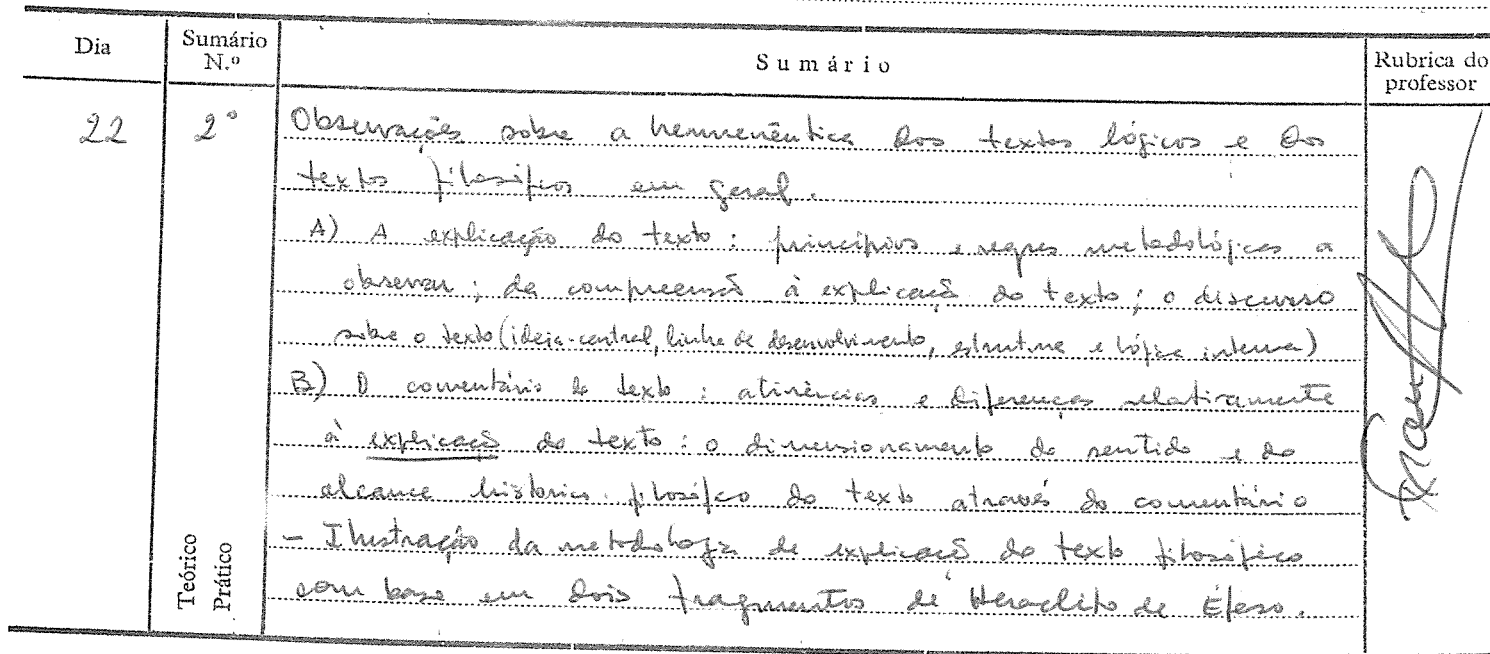 Dia
Sumário N.º
Sumário
Rubrica do professor
22
2º
Observações sobre a hermenêutica dos textos lógicos e dos
textos filosóficos em geral.
A) A explicação do texto: princípios e regras metodológicas a
observar; da compreensão à explicação do texto; o discurso
sobre o texto (ideia-central, linha de desenvolvimento, estrutura e lógica interna)
B) O comentário de texto: atinências e diferenças relativamente
à explicação do texto: o dimensionamento do sentido e do
alcance histórico-filosófico do texto através do comentário
- Ilustração da metodologia de explicação do texto filosófico
com base em dois fragmentos de Heraclito de Éfeso.
Teórico
Prático